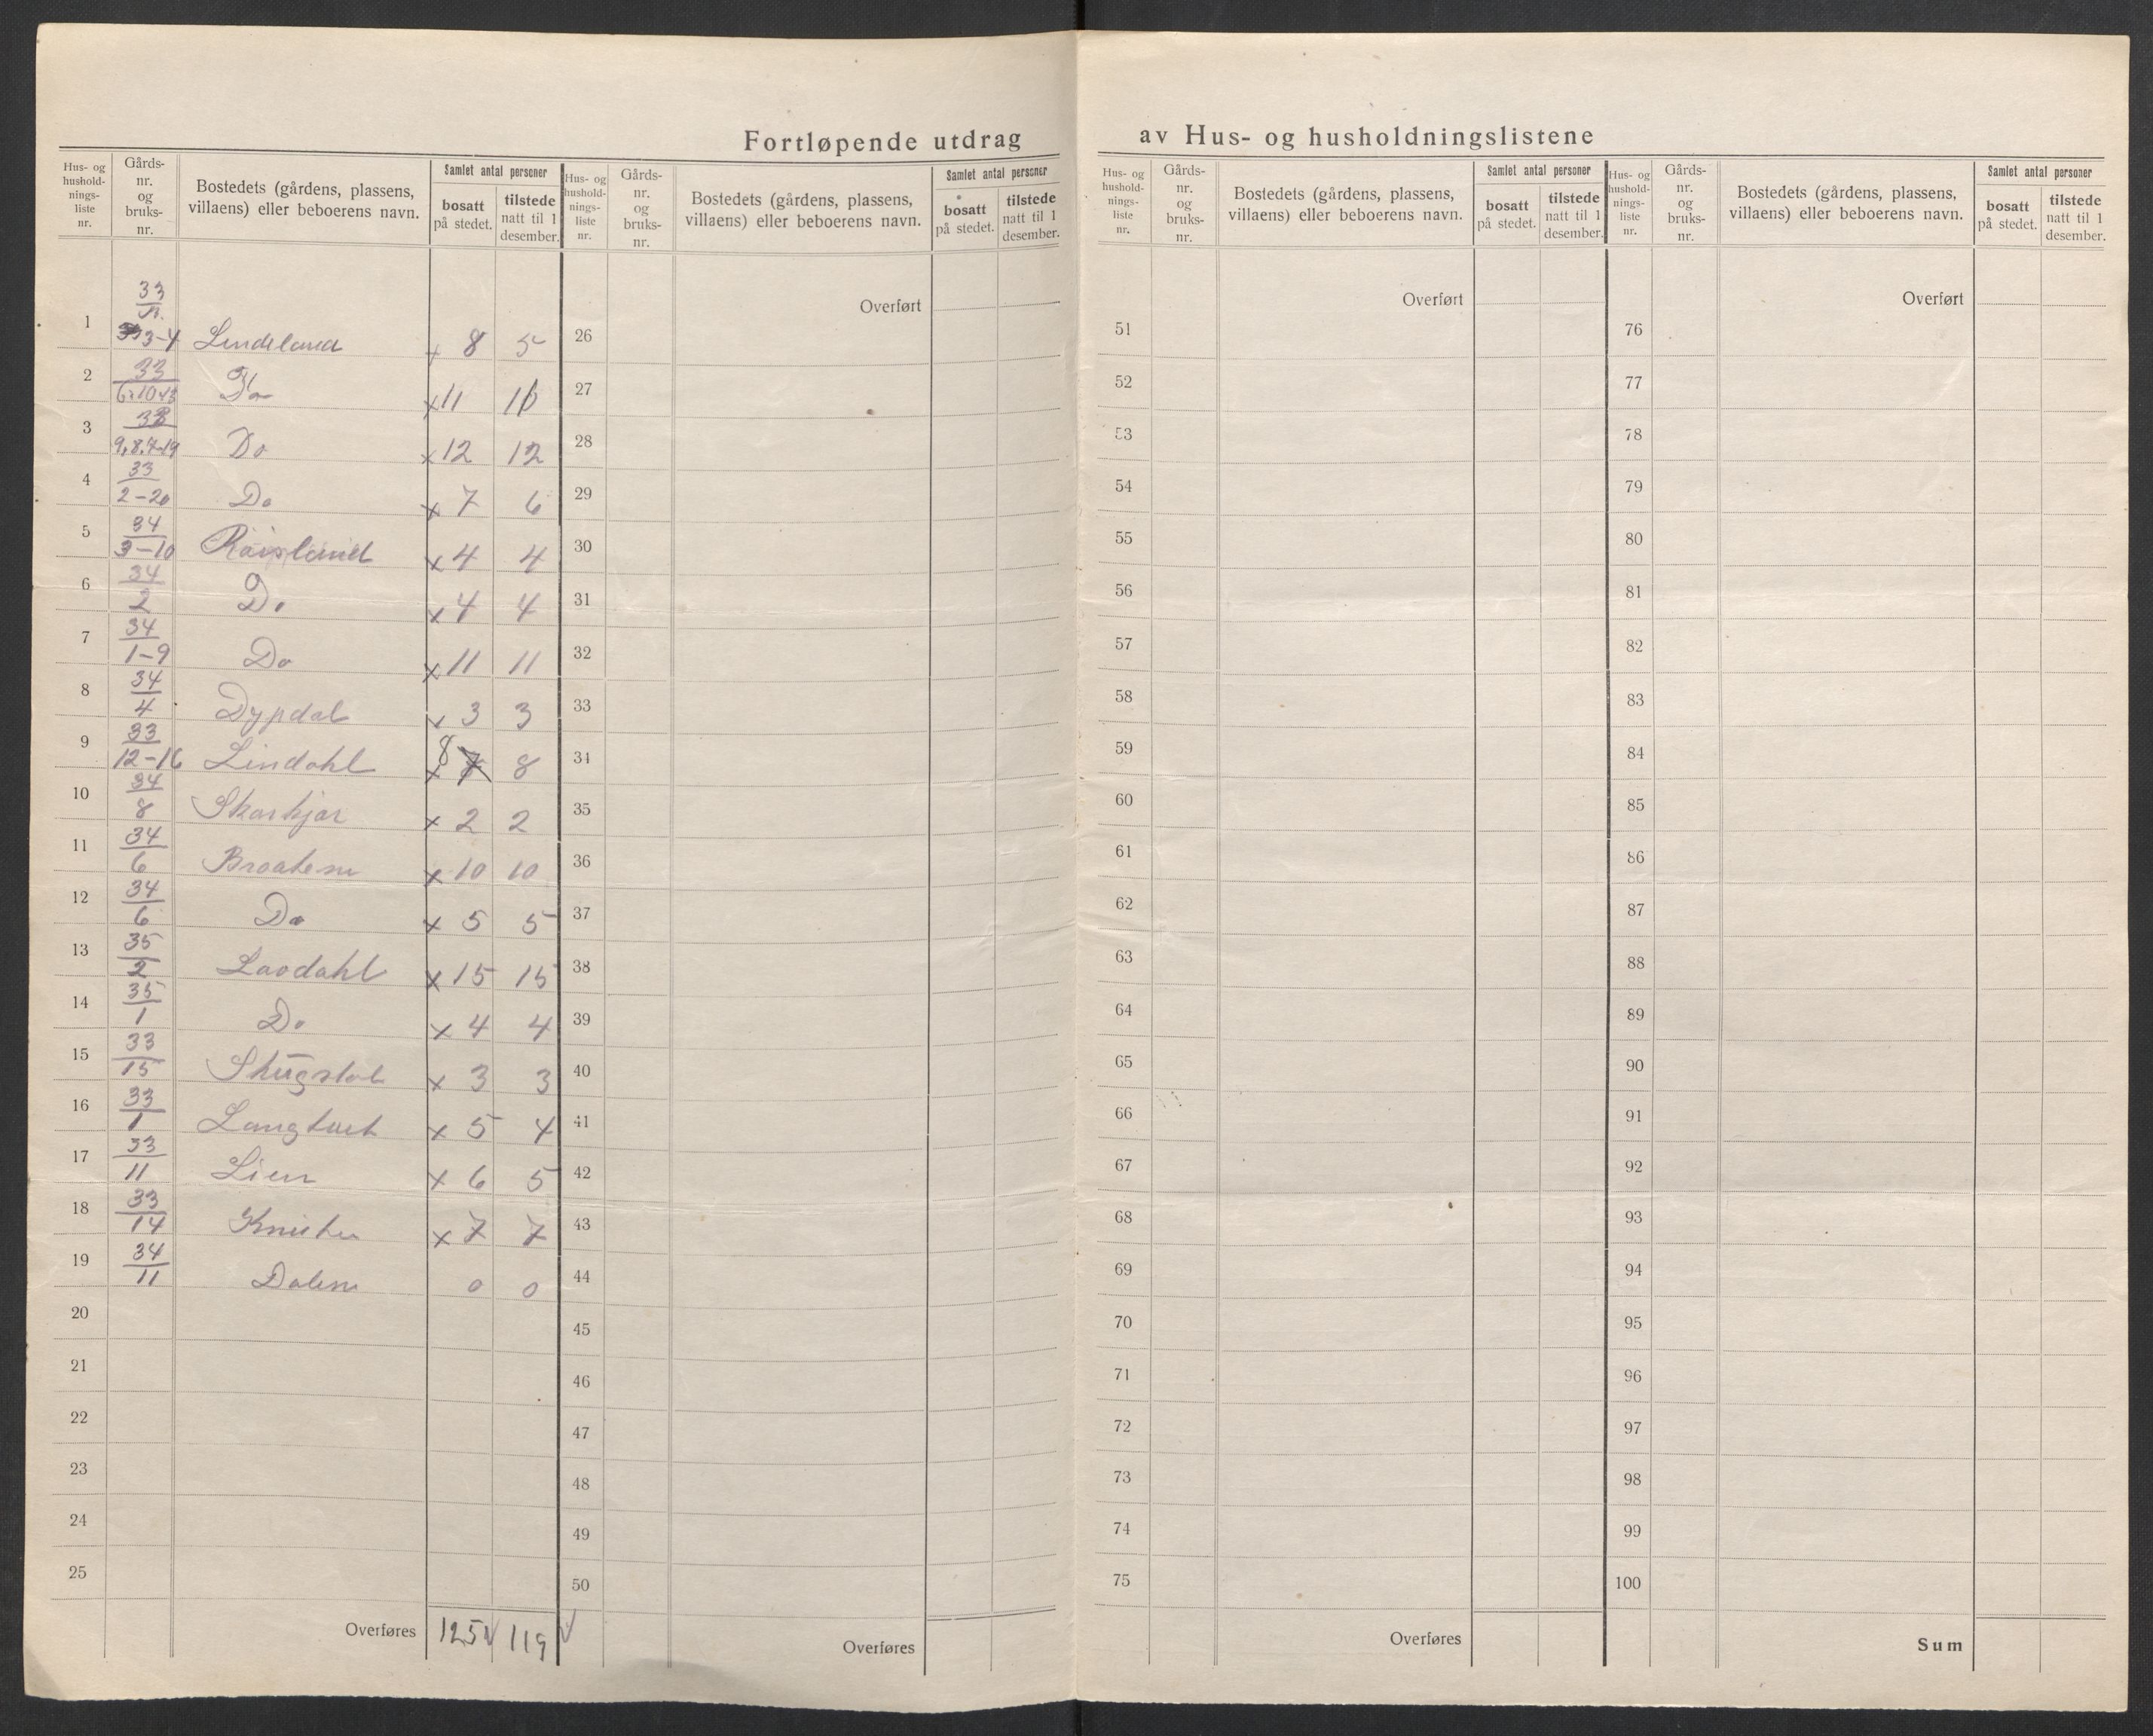 Fortløpende utdrag av Hus- og husholdningslistene
Hus- og husholdnings-liste nr. Gårds-nr. og bruks-nr. Bostedets (gårdens, plassens, villaens) eller beboerens navn. Samlet antal personer bosatt på stedet. tilstede natt til 1 desember.
Hus- og husholdnings-liste nr. Gårds-nr. og bruks-nr. Bostedets (gårdens, plassens, villaens) eller beboerens navn. Samlet antal personer bosatt på stedet. tilstede natt til 1 desember.
Hus- og husholdnings-liste nr. Gårds-nr. og bruks-nr. Bostedets (gårdens, plassens, villaens) eller beboerens navn. Samlet antal personer bosatt på stedet. tilstede natt til 1 desember.
Hus- og husholdnings-liste nr. Gårds-nr. og bruks-nr. Bostedets (gårdens, plassens, villaens) eller beboerens navn. Samlet antal personer bosatt på stedet. tilstede natt til 1 desember.
1 33 3-4 Lindeland x 8 5
2 33 Do x 11 10
3 33 9,8.7-19 Do x 12 12
4 33/2-20 Do x 7 6
5 34/3-10 x 4 4
6 34/2 Do x 4 4
7 34/1-9 Do x 11 11
8 34/4 Dypdal x 3 3
9 33/12-16 Lindahl x 8 7 8
10 34/8 x 2 2
11 34/6 Braatene x 10 10
12 34/6 Do x 5 5
13 35/2 x 15 15
14 35/1 Do x 4 4
15 33/15 x 3 3
16 33/1 x 5 4
17 33/11 Lien x 6 5
18 33/14 x 7 7
19 34/11 Dalene 0 0
20
21
22
23
24
25
Overføres 125 √ 119 √
Overført
26
27
28
29
30
31
32
33
34
35
36
37
38
39
40
41
42
43
44
45
46
47
48
49
50
Overføres
Overført
51
52
53
54
55
56
57
58
59
60
61
62
63
64
65
66
67
68
69
70
71
72
73
74
75
Overføres
Overført
76
77
78
79
80
81
82
83
84
85
86
87
88
89
90
91
92
93
94
95
96
97
98
99
100
Sum